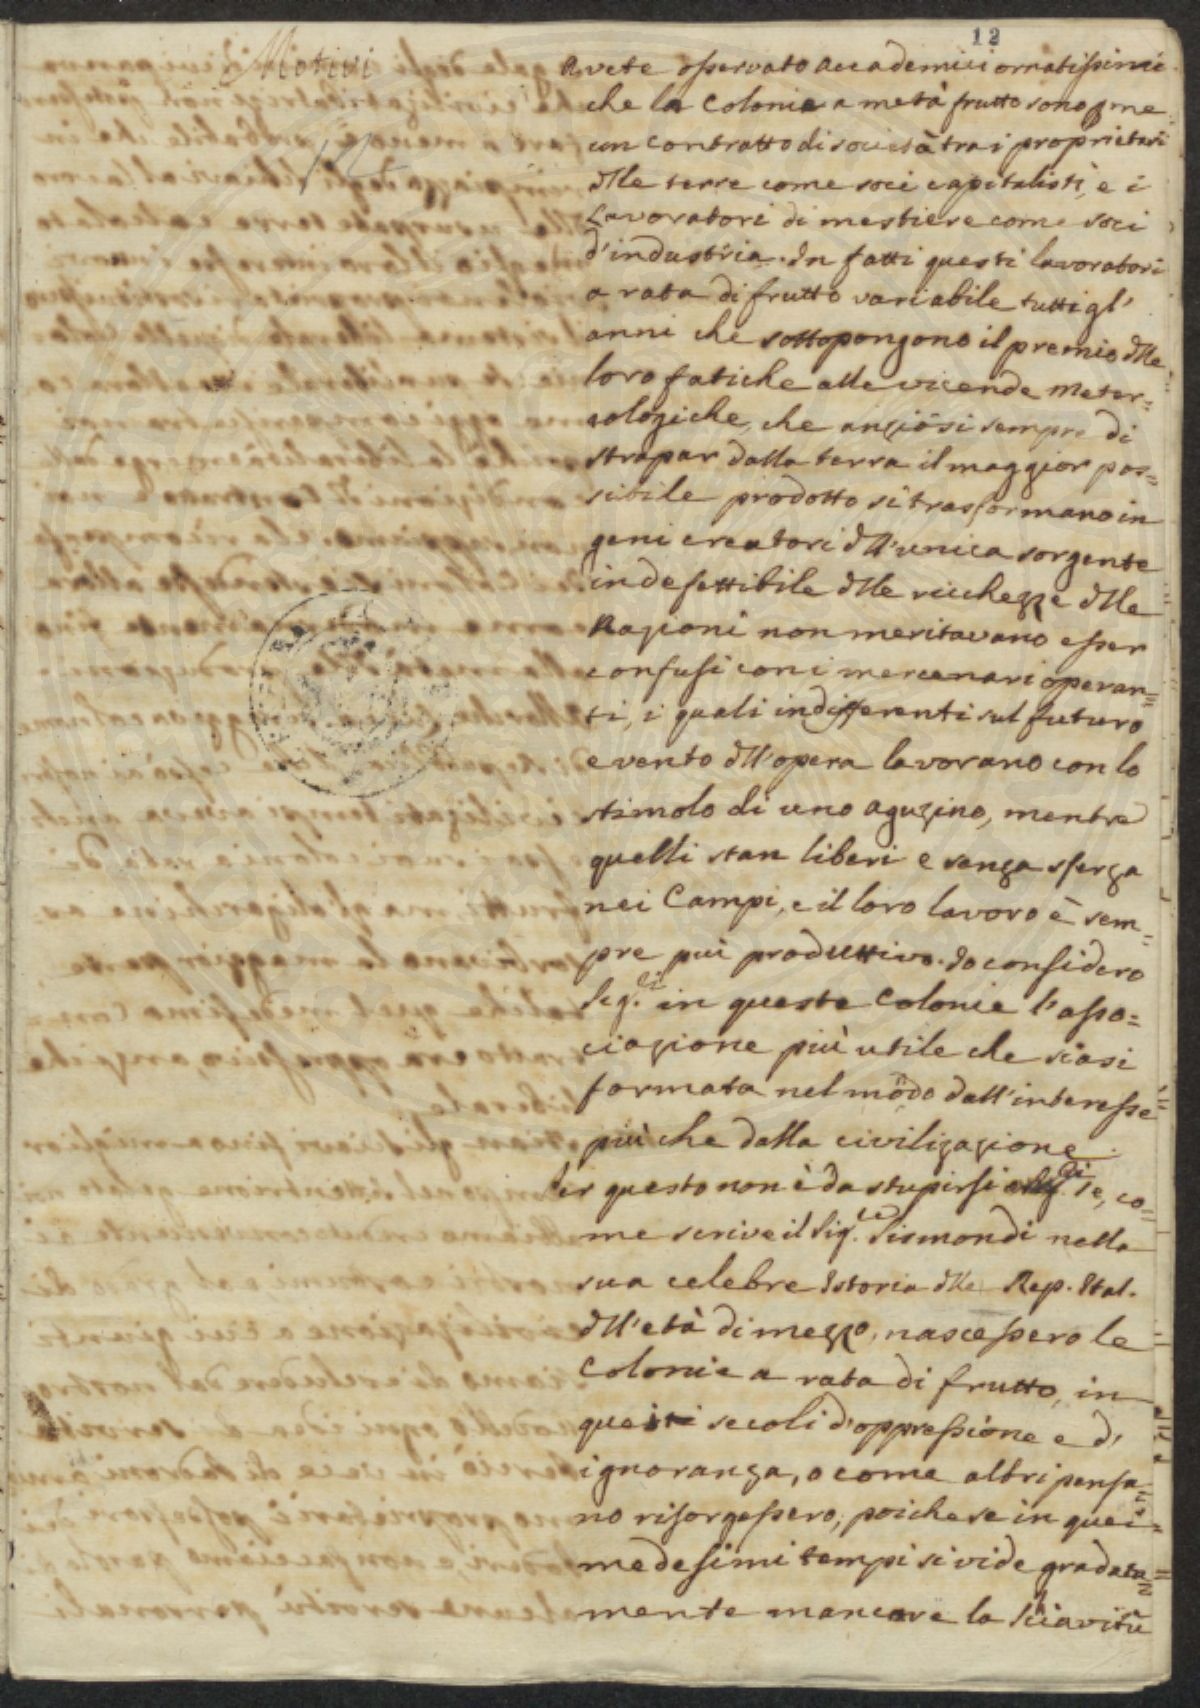 12
Motivi
Avete osservato Accademici ornatissimi
che le Colonie a metà frutto sono come
un contratto di società tra i proprietari
dlle terre come soci capitalisti, e i
Lavoratori di mestiere come soci
d'industria. In fatti questi lavoratori
a rata di frutto variabile tutti gl'
anni che sottopongono il premio dlle
loro fatiche alle vicende meter=
eologiche, che anziosi sempre di
strapar dalla terra il maggior pos=
sibile prodotto si trasformano in
geni creatori dll'unica sorgente
indefettibile dlle ricchezze dlle
Nazioni non meritavano esser
confusi con i mercenari operan=
ti, i quali indifferenti sul futuro
evento dll'opera lavorano con lo
stimolo di uno aguzino, mentre
quelli stan liberi e senza sferza
nei Campi, e il loro lavoro è sem=
pre più produttivo. Io considero
Sig.ri in queste Colonie l'asso=
ciazione più utile che siasi
formata nel modo dall'interesse
più che dalla civilizazione.
Per questo non è da stupirsi se, co=
me scrive il Sig.re Sismondi nella
sua celebre Istoria dlle Rep. Ital.
dll'età di mezzo, nascessero le
Colonie a rata di frutto, in
questi secoli d'oppressione e d'
ignoranza, o come altri pensa=
no risorgessero; poiche se in quei=
medesimi tempi si vide gradata=
mente mancare la schiavitù